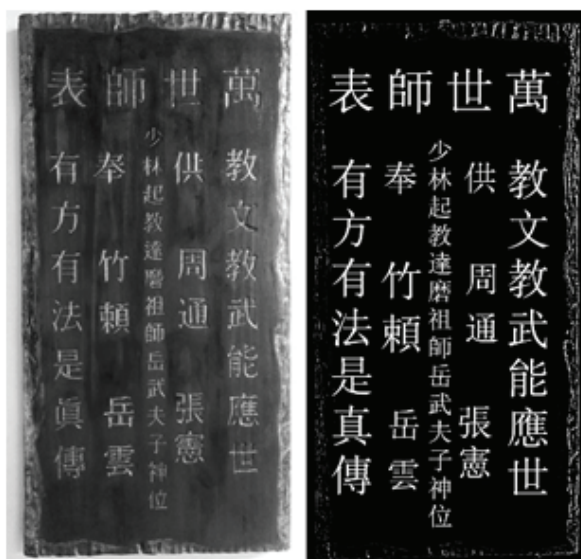 萬世師表
教文教武能應世
供 周通 張憲
少林起教達磨祖師岳武夫子神位
奉 竹賴 岳雲
有方有法是眞傳
萬世師表
教文教武能應世
供 周通 張憲
少林起教達磨祖師岳武夫子神位
奉 竹賴 岳雲
有方有法是真傳